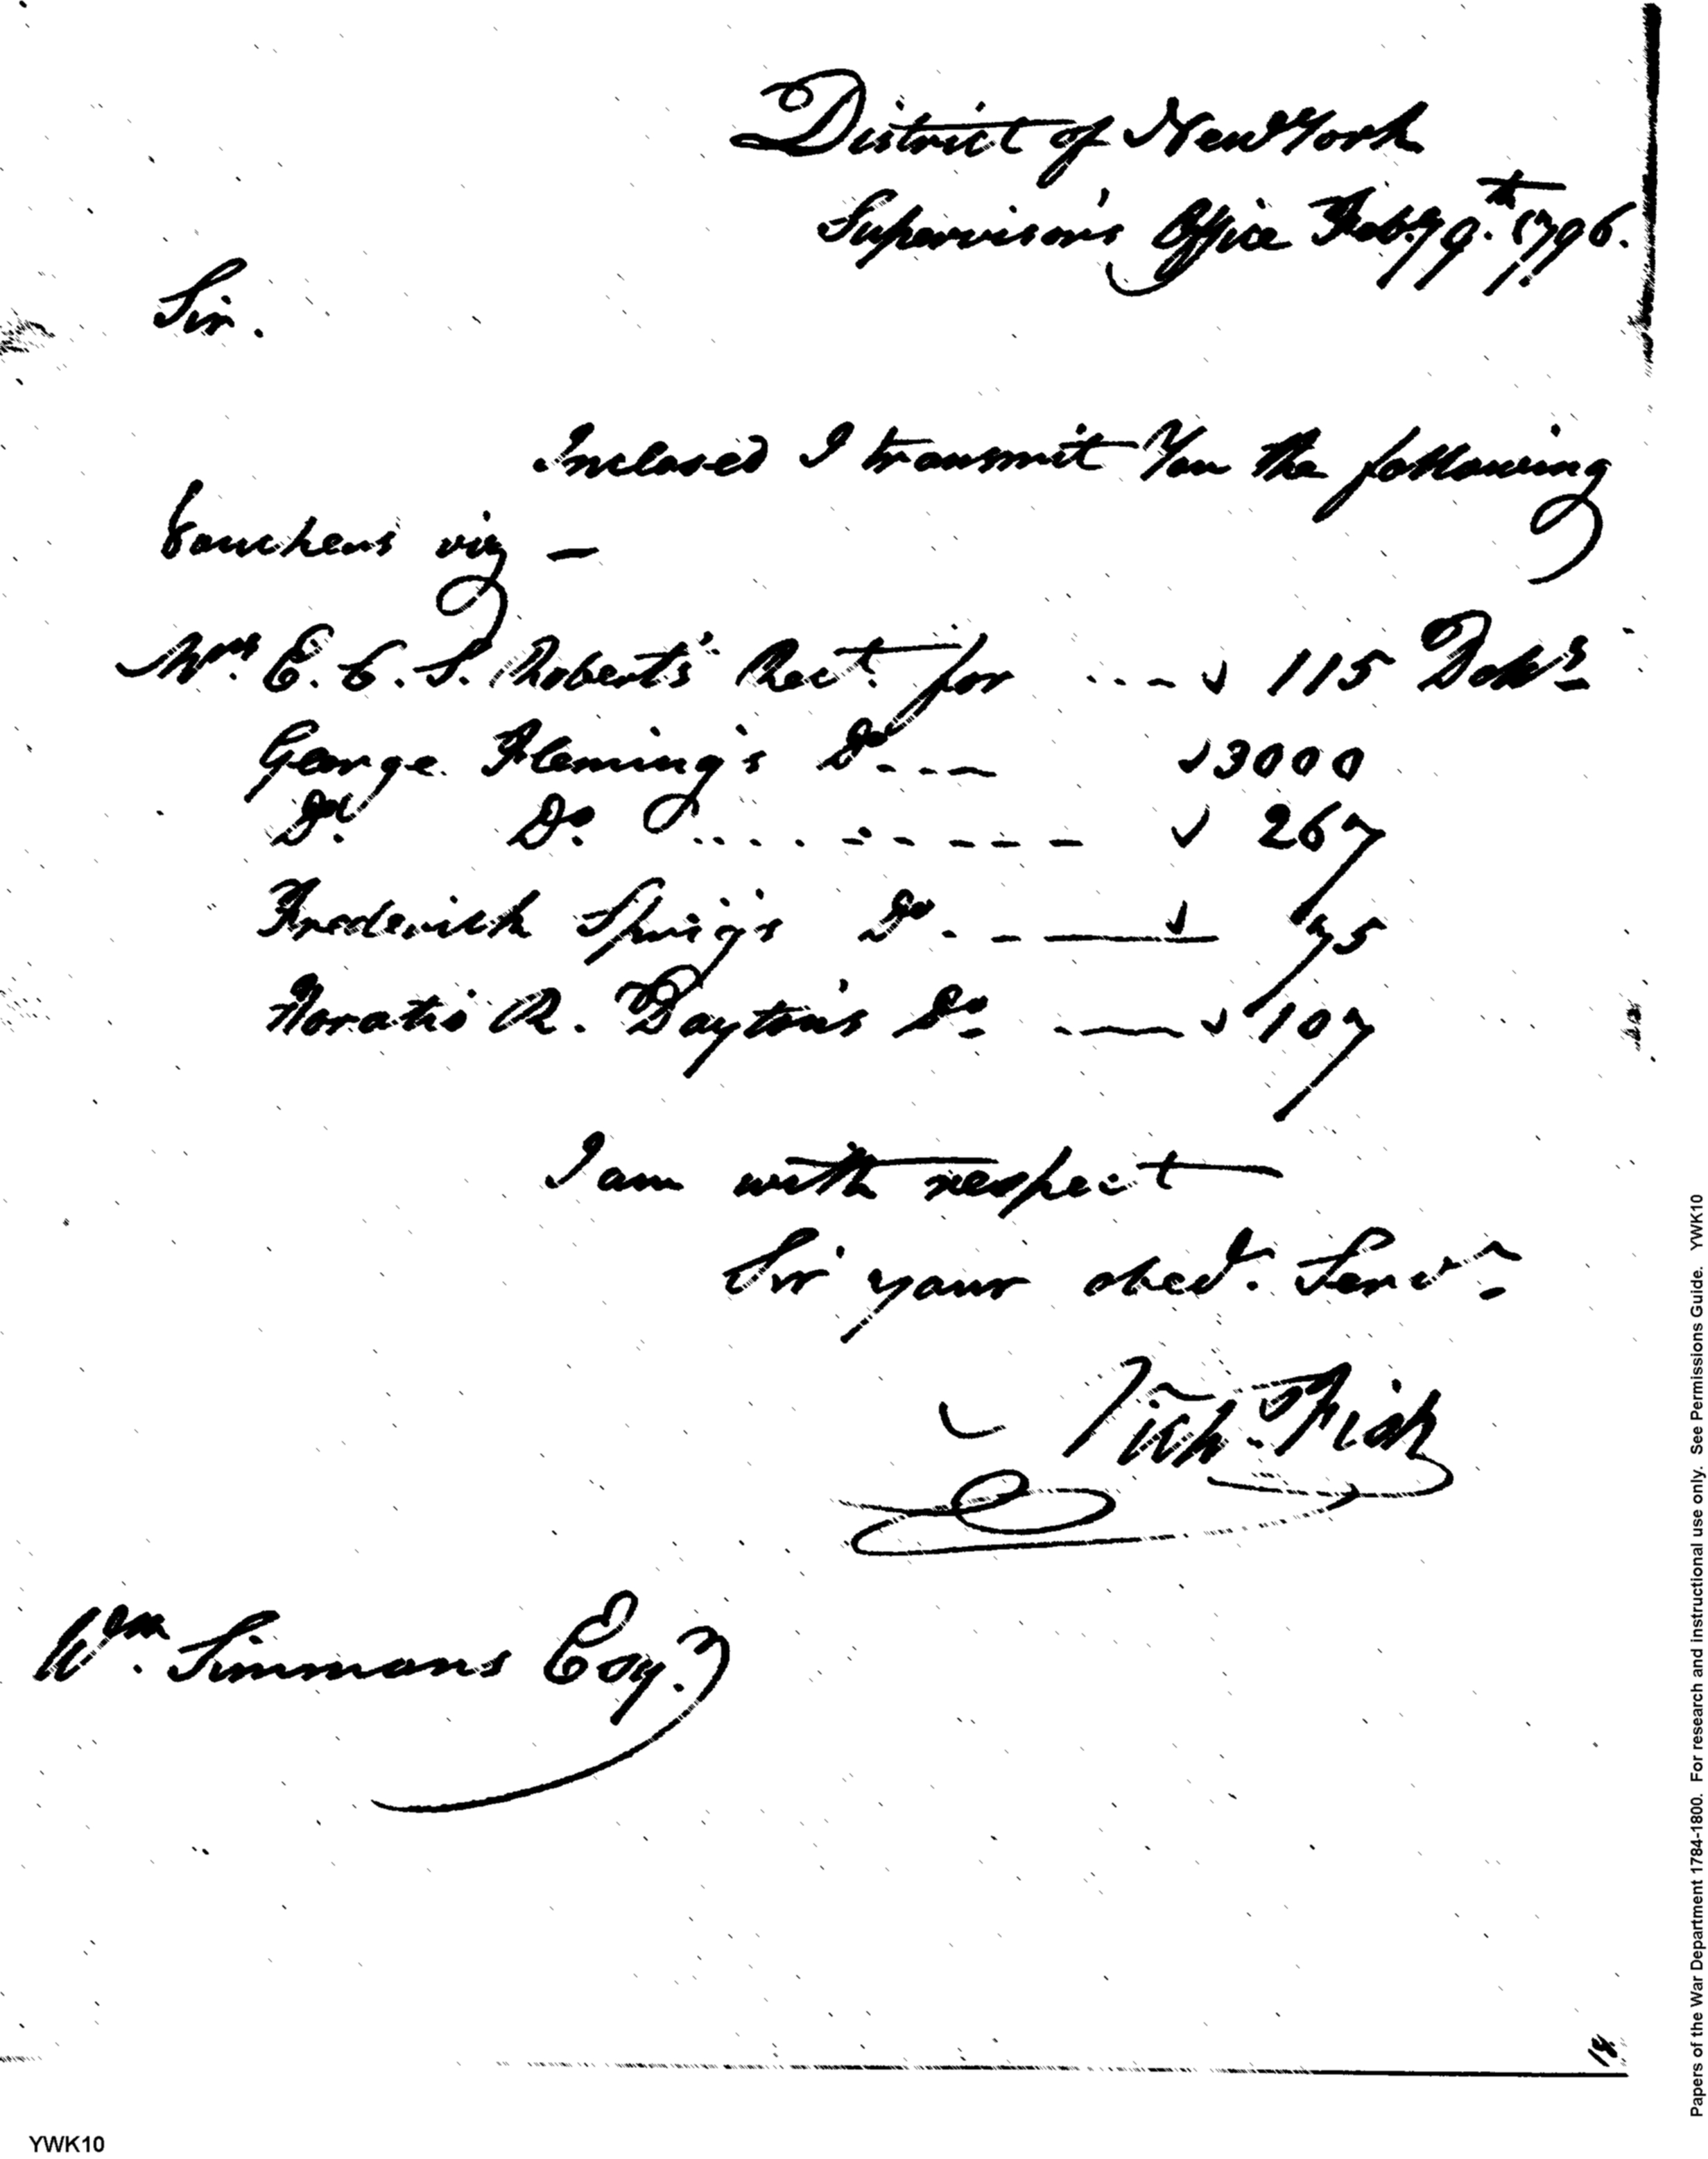 District of New York
Supervisor's Office Feby. 9.th 1796.
Sir.
Inclosed I transmit You the following
Vouchers viz —
Mrs. E. C. S. Roberts' Rect. for .... ✓ 115 Dolls
George Fleming's Do. --- ✓ 3000
Do. Do. ......... ✓ 267
Frederick Sprigs Do. - - — ✓ 75
Horatio R. Dayton's Do. - — ✓ 107
I am with respect
Sir your obedt. Servt.
Nich. Fish
Wm. Simmons Esqr.
14
YWK10
Papers of the War Department 1784-1800. For research and instructional use only. See Permissions Guide. YWK10